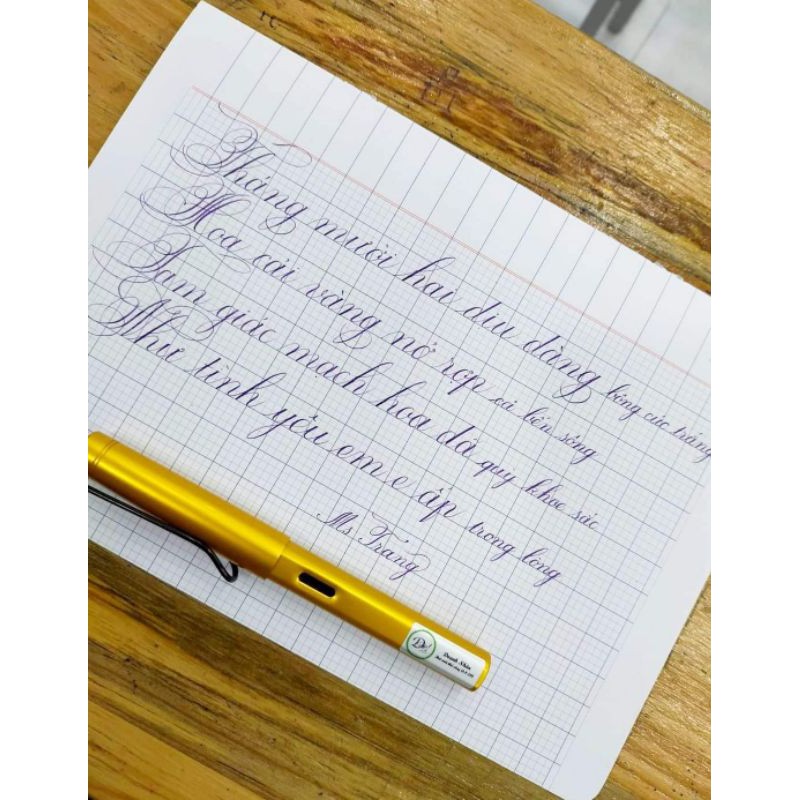 Tháng mười hai dịu dàng bông cúc trắng
Hoa cải vàng nở rợp cả bến sông
Tam giác mạch hoa đã quy khoe sắc
Như tình yêu em e ấp trong lòng
Ms Trang
Doanh Nhân